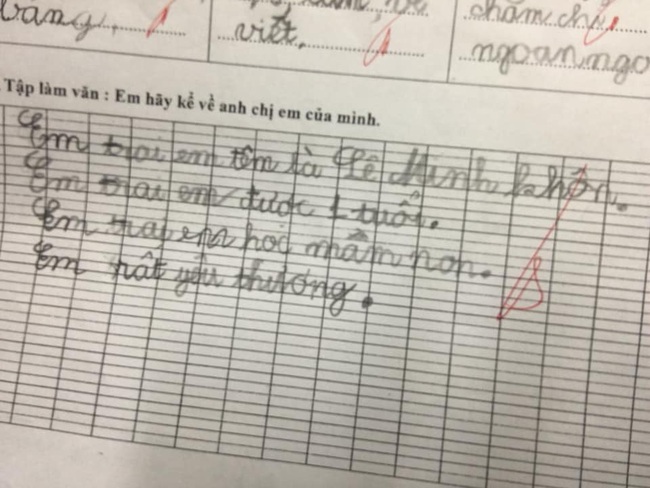 vâng, chăm chỉ,
viết, ngoan ngo
Tập làm văn : Em hãy kể về anh chị em của mình.
Em trai em tên là Lê Minh Khôn.
Em trai em được 1 tuổi.
Em trai em học mầm non.
Em rất yêu thương.